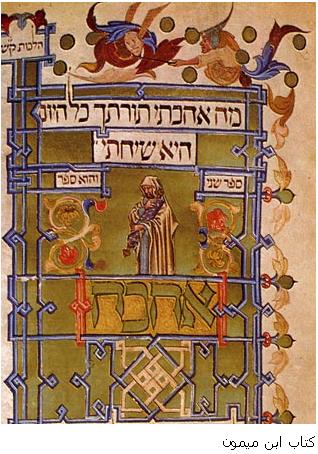 הלכות קש
מה אהבתי תורתך כל היום
היא שיחתי
ספר שני והוא ספר
אהבה
كتاب ابن ميمون